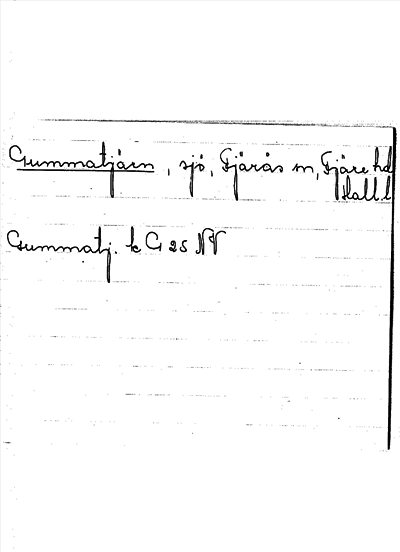 Gummatjärn, sjö, Fjärås sn, Fjäre hd
Hall. l.
Gummatj. k G 25 NV